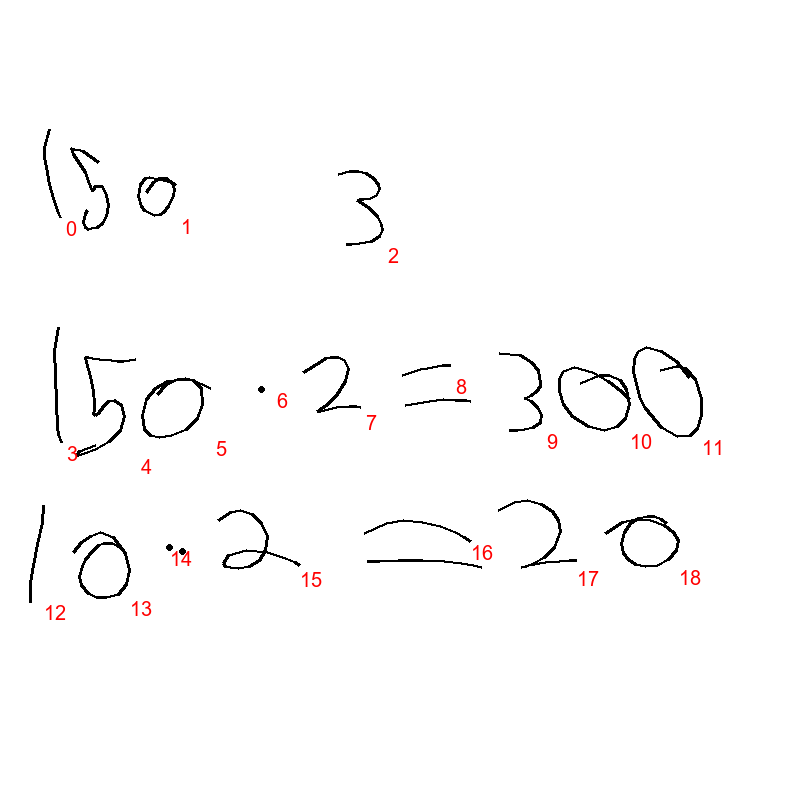 150 3
0 1 2
150 · 2 = 300
3 4 5 6 7 8 9 10 11
10 ·· 2 = 20
12 13 14 15 16 17 18